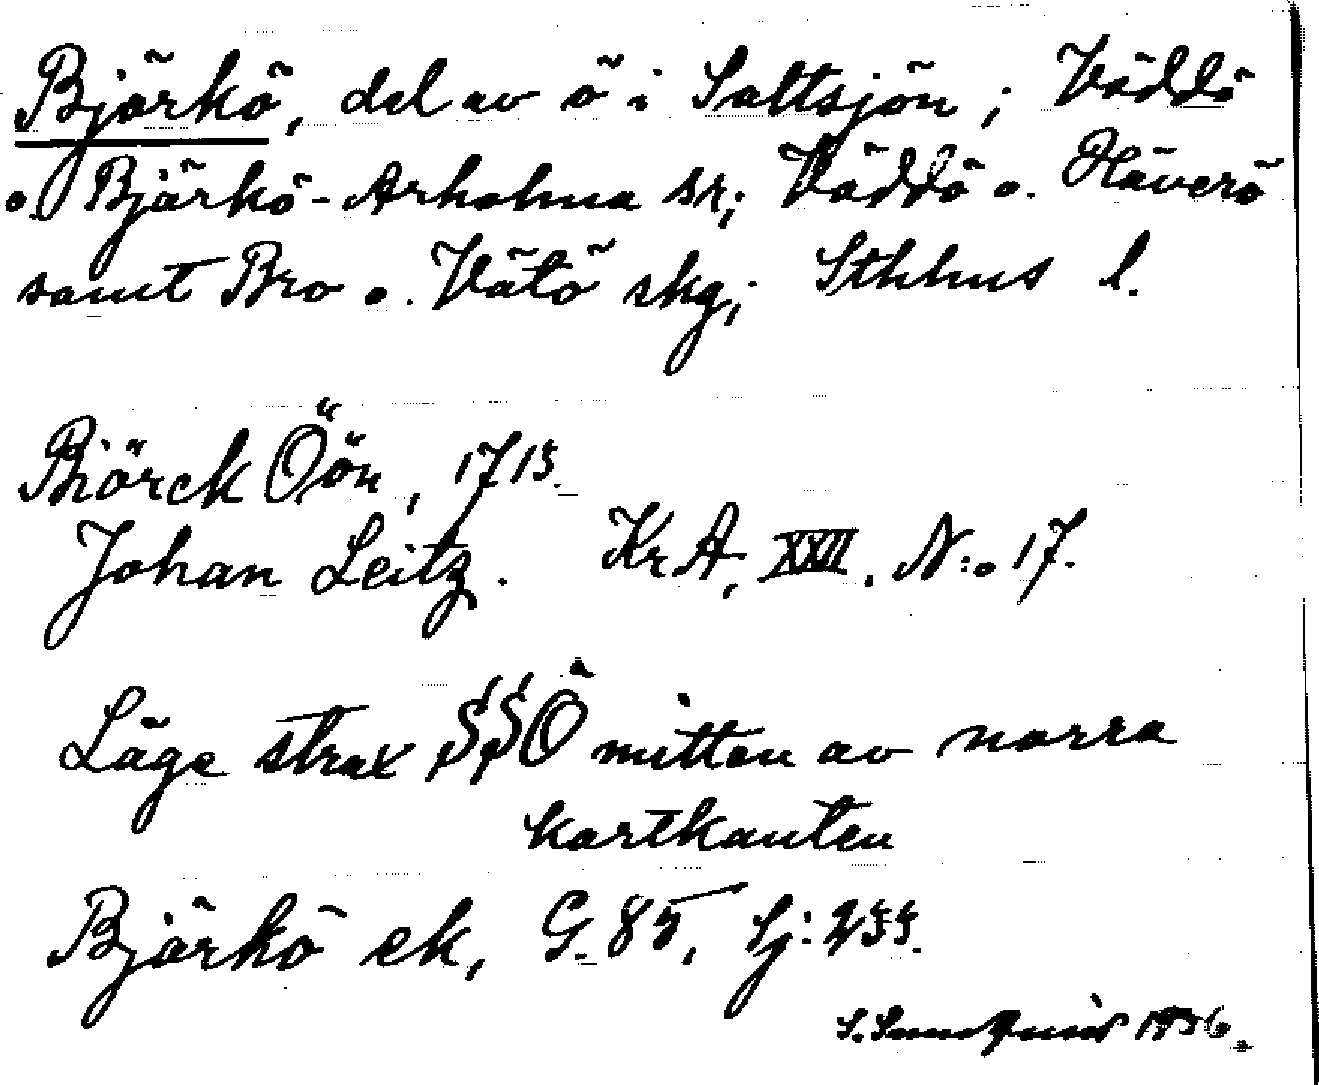 Björkö, del av ö i Saltsjön; Väddö
o. Björkö-Arholma sn; Väddö o. Häverö
samt Bro o. Vätö skg; Sthlms l.
Biörck Öön, 1713.
Johan Leitz. Kr.A, XXII. N:o 17.
Läge strax SSÖ mitten av norra
kartkanten
Björkö ek, G. 85, Sj: 233.
S. Sundquist 1936.